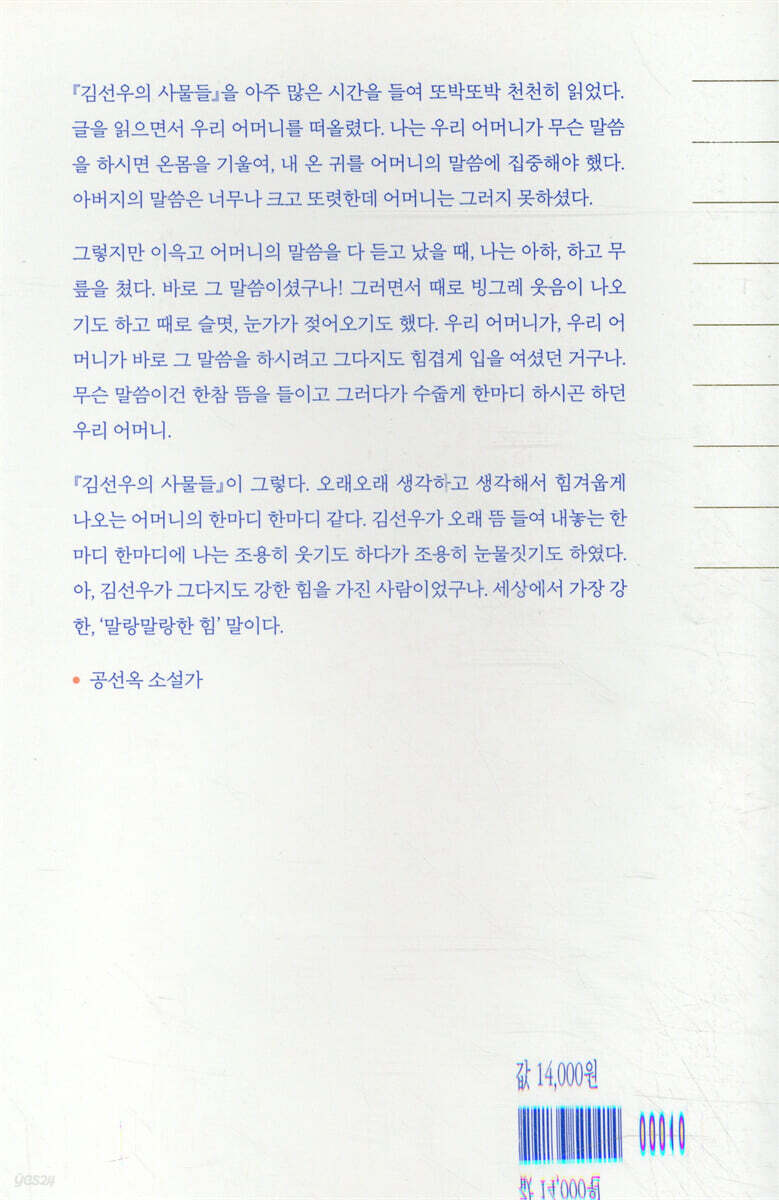 『김선우의 사물들』을 아주 많은 시간을 들여 또박또박 천천히 읽었다.
글을 읽으면서 우리 어머니를 떠올렸다. 나는 우리 어머니가 무슨 말씀
을 하시면 온몸을 기울여, 내 온 귀를 어머니의 말씀에 집중해야 했다.
아버지의 말씀은 너무나 크고 또렷한데 어머니는 그러지 못하셨다.
그렇지만 이윽고 어머니의 말씀을 다 듣고 났을 때, 나는 아하, 하고 무
릎을 쳤다. 바로 그 말씀이셨구나! 그러면서 때로 빙그레 웃음이 나오
기도 하고 때로 슬몃, 눈가가 젖어오기도 했다. 우리 어머니가, 우리 어
머니가 바로 그 말씀을 하시려고 그다지도 힘겹게 입을 여셨던 거구나.
무슨 말씀이건 한참 뜸을 들이고 그러다가 수줍게 한마디 하시곤 하던
우리 어머니.
『김선우의 사물들』이 그렇다. 오래오래 생각하고 생각해서 힘겨웁게
나오는 어머니의 한마디 한마디 같다. 김선우가 오래 뜸 들여 내놓는 한
마디 한마디에 나는 조용히 웃기도 하다가 조용히 눈물짓기도 하였다.
아, 김선우가 그다지도 강한 힘을 가진 사람이었구나. 세상에서 가장 강
한, ‘말랑말랑한 힘’ 말이다.
• 공선옥 소설가
값 14,000원
00010
값 14,000원
yes24